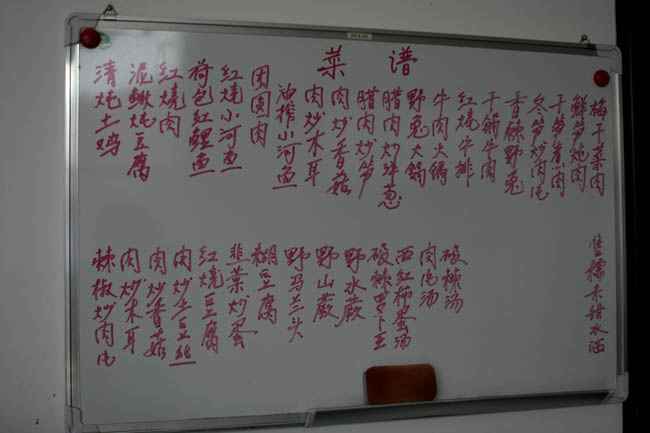 菜谱
清炖土鸡
泥鳅炖豆腐
红烧肉
荷包红鲤鱼
红烧小河鱼
团圆肉
油榨小河鱼
肉炒木耳
肉炒香菇
腊肉炒笋
腊肉炒洋葱
野兔火锅
牛肉火锅
红烧牛排
干箭牛肉
香辣野兔
冬笋炒肉
干笋煮肉
鲜笋炖肉
梅干菜肉
辣椒炒肉
肉炒木耳
肉炒香菇
肉炒土豆丝
红烧豆腐
韭菜炒蛋
糊豆腐
野马兰头
野山蕨
野水蕨
酸辣萝卜
西红柿蛋汤
肉汤
酸辣汤
售糯米甜水酒